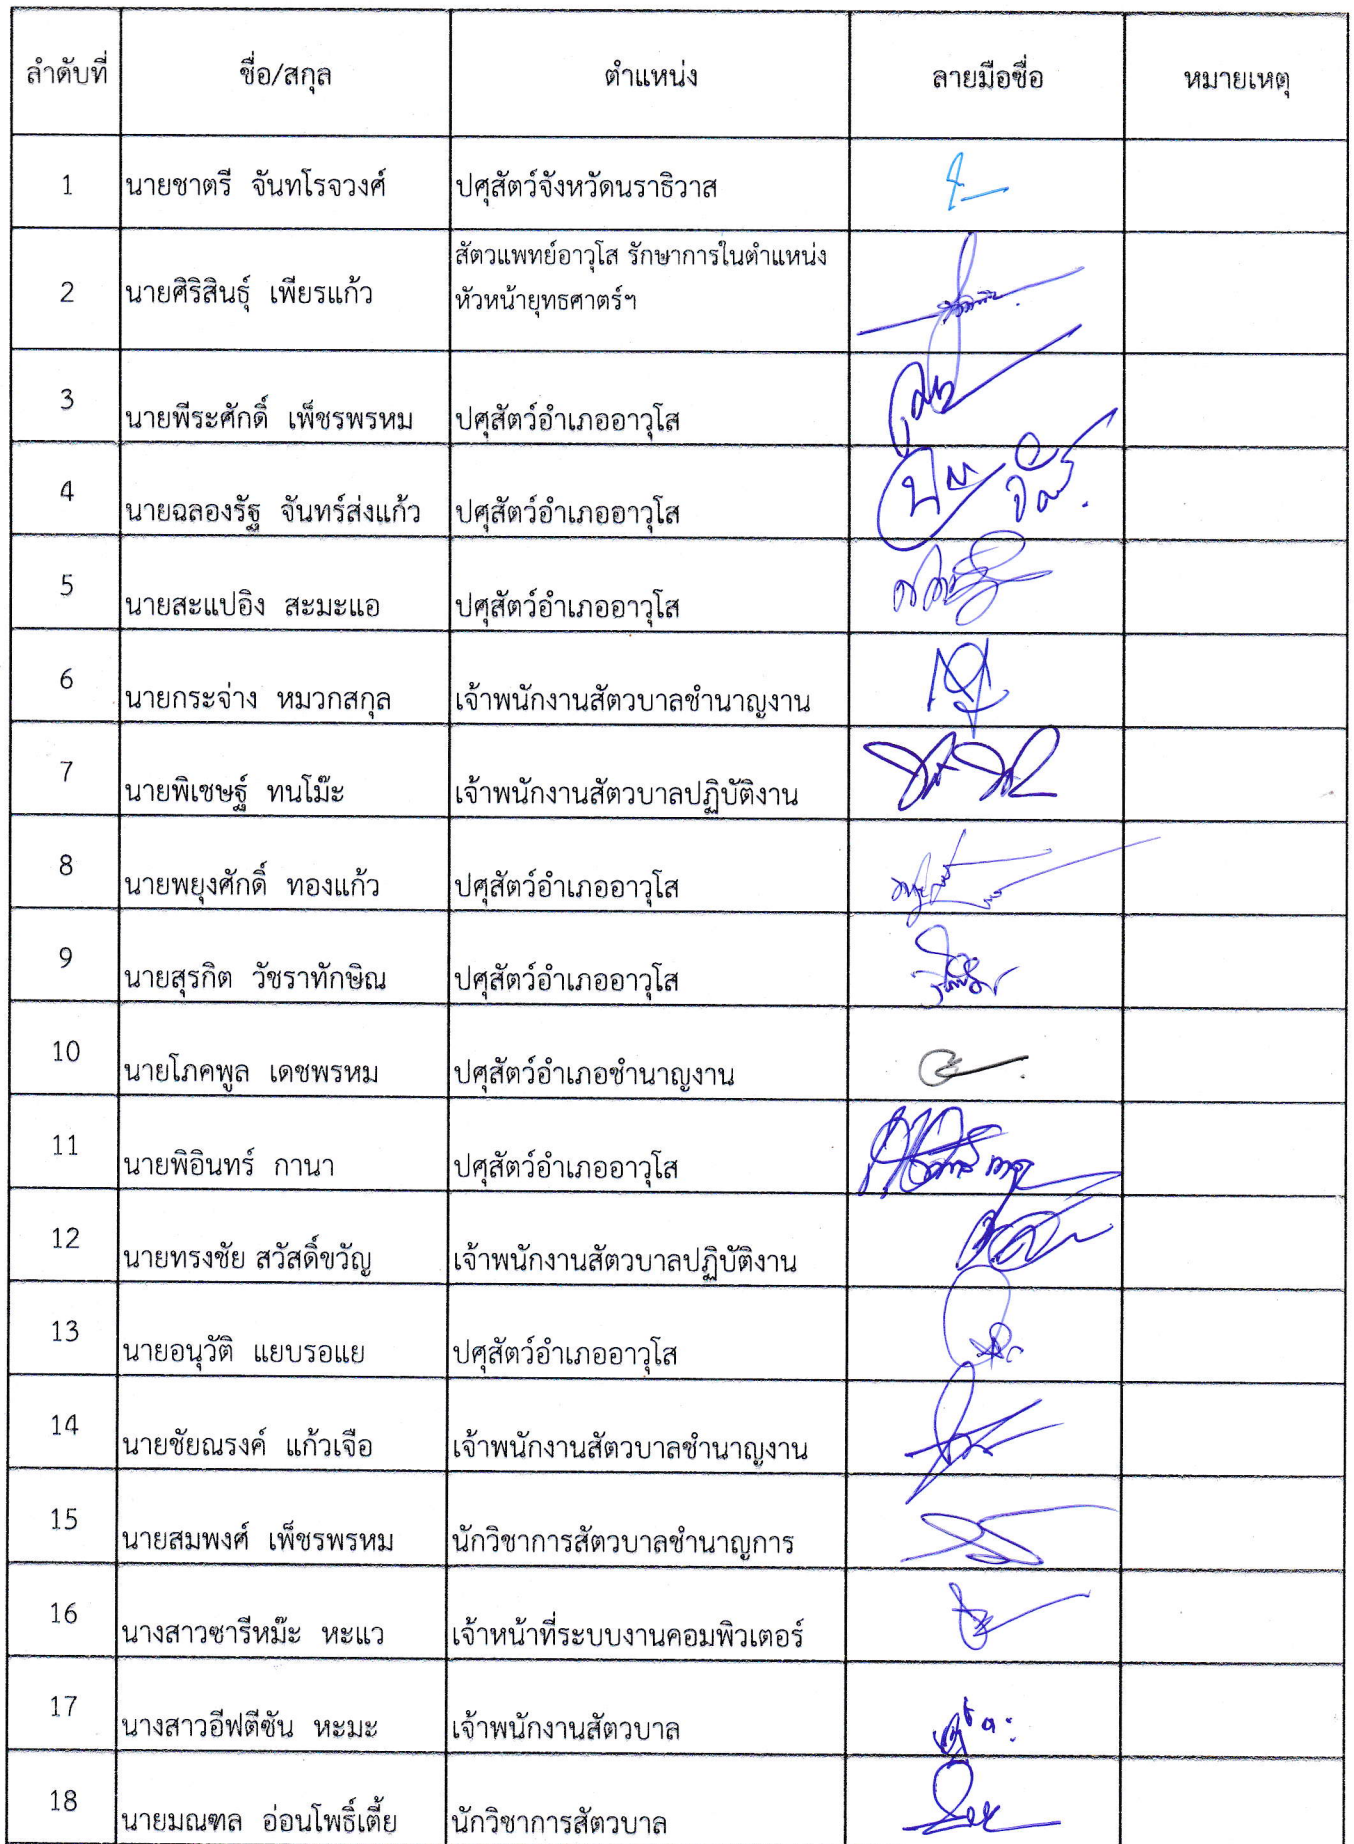 ลำดับที่ ชื่อ/สกุล ตำแหน่ง ลายมือชื่อ หมายเหตุ
1 นายชาตรี จันทโรจวงศ์ ปศุสัตว์จังหวัดนราธิวาส
สัตวแพทย์อาวุโส รักษาการในตำแหน่ง
2 นายศิริสินธุ์ เพียรแก้ว หัวหน้ายุทธศาตร์ฯ
3 นายพีระศักดิ์ เพ็ชรพรหม ปศุสัตว์อำเภออาวุโส
4 นายฉลองรัฐ จันทร์ส่งแก้ว ปศุสัตว์อำเภออาวุโส
5 นายสะแปอิง สะมะแอ ปศุสัตว์อำเภออาวุโส
6 นายกระจ่าง หมวกสกุล เจ้าพนักงานสัตวบาลชำนาญงาน
7 นายพิเชษฐ์ ทนโม๊ะ เจ้าพนักงานสัตวบาลปฏิบัติงาน
8 นายพยุงศักดิ์ ทองแก้ว ปศุสัตว์อำเภออาวุโส
9 นายสุรกิต วัชราทักษิณ ปศุสัตว์อำเภออาวุโส
10 นายโภคพูล เดชพรหม ปศุสัตว์อำเภอชำนาญงาน
11 นายพิอินทร์ กานา ปศุสัตว์อำเภออาวุโส
12 นายทรงชัย สวัสดิ์ขวัญ เจ้าพนักงานสัตวบาลปฏิบัติงาน
13 นายอนุวัติ แยบรอแย ปศุสัตว์อำเภออาวุโส
14 นายชัยณรงค์ แก้วเจือ เจ้าพนักงานสัตวบาลชำนาญงาน
15 นายสมพงศ์ เพ็ชรพรหม นักวิชาการสัตวบาลชำนาญการ
16 นางสาวซารีหม๊ะ หะแว เจ้าหน้าที่ระบบงานคอมพิวเตอร์
17 นางสาวอีฟตีซัน หะมะ เจ้าพนักงานสัตวบาล
18 นายมณฑล อ่อนโพธิ์เตี้ย นักวิชาการสัตวบาล